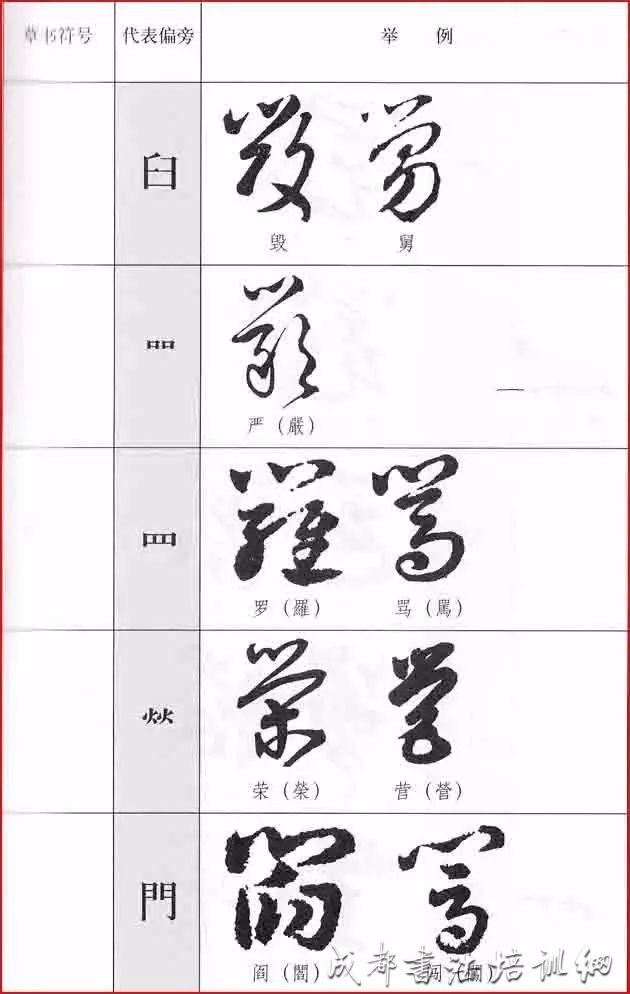 草书符号 代表偏旁 举 例
臼
毁 舅
吅
严（嚴）
罒
罗（羅） 骂（罵）
炏
荣（榮） 营（營）
門
阎（閻）
成都書法培训網